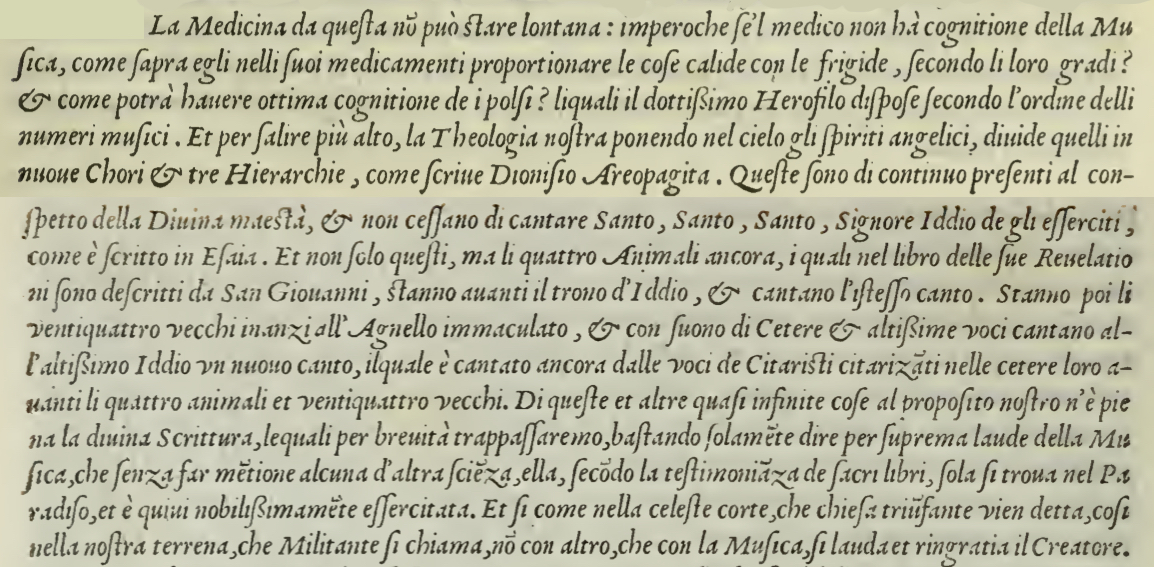 La Medicina da queſta nõ può ſtare lontana : imperoche ſe'l medico non hà cognitione della Mu
ſica, come ſapra egli nelli ſuoi medicamenti proportionare le coſe calide con le frigide , ſecondo li loro gradi?
& come potrà hauere ottima cognitione de i polſi? liquali il dottiſſimo Herofilo diſpoſe ſecondo l'ordine delli
numeri muſici . Et per ſalire più alto, la Theologia noſtra ponendo nel cielo gli ſpiriti angelici, diuide quelli in
nuoue Chori & tre Hierarchie , come ſcriue Dioniſio Areopagita . Queſte ſono di continuo preſenti al con-
ſpetto della Diuina maeſtà, & non ceſſano di cantare Santo, Santo, Santo, Signore Iddio de gli eſſerciti,
come è ſcritto in Eſaia. Et non ſolo queſti, ma li quattro Animali ancora, i quali nel libro delle ſue Reuelatio
ni ſono deſcritti da San Giouanni, ſtanno auanti il trono d'Iddio, & cantano l'iſteſſo canto. Stanno poi li
ventiquattro vecchi inanzi all' Agnello immaculato, & con ſuono di Cetere & altiſſime voci cantano al-
l'altiſſimo Iddio vn nuouo canto, ilquale è cantato ancora dalle voci de Citariſti citarizãti nelle cetere loro a-
uanti li quattro animali et ventiquattro vecchi. Di queſte et altre quaſi infinite coſe al propoſito noſtro n'è pie
na la diuina Scrittura,lequali per breuità trappaſſaremo,baſtando ſolamẽte dire per ſuprema laude della Mu
ſica,che ſenza far mẽtione alcuna d'altra ſciẽza,ella, ſecõdo la teſtimoniãza de ſacri libri, ſola ſi troua nel Pa
radiſo,et è quiui nobiliſſimamẽte eſſercitata. Et ſi come nella celeſte corte,che chieſa triũfante vien detta,coſi
nella noſtra terrena,che Militante ſi chiama,nõ con altro,che con la Muſica,ſi lauda et ringratia il Creatore.